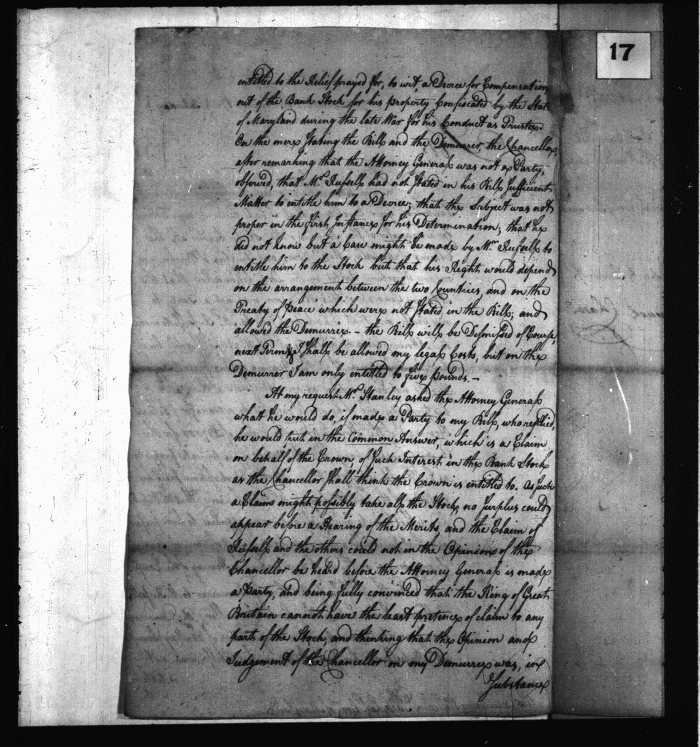 17
entitled to the Relief prayed for, to wit, a Decree for Compensation
out of the Bank Stock for his property Confiscated by the State
of Maryland during the late War for his Conduct as Trustee.
On the mere stating the Bill and the Demurrer, the Chancellor,
after remarking that the Attorney General was not a Party,
observed, that Mr. Russell had not stated in his Bill sufficient
Matter to entitle him to a Decree; that the Subject was not
proper in the first Instance for his Determination; that he
did not know but a Case might be made by Mr. Russell to
entitle him to the Stock but that his Right would depend
on the arrangement between the two Countries, and on the
Treaty of Peace which were not stated in the Bill; and
allowed the Demurrer. – the Bill will be Dismissed of Course,
next Term & I shall be allowed my legal Costs, but on the
Demurrer I am only entitled to five pounds. –
At my request Mr. Stanley asked the Attorney General
what he would do, if made a Party to my Bill, who replied,
he would put in the Common Answer, which is a Claim
on behalf of the Crown, of such Interest in the Bank Stock
as the Chancellor shall think the Crown is entitled to. As such
a Claim might possibly take all the Stock, no surplus could
appear before a Hearing of the Merits, and the Claim of
Russell and the others could not in the Opinion of the
Chancellor be heard before the Attorney General is made
a Party, and being fully convinced that the King of Great
Britain cannot have the least pretence of claim to any
part of the Stock, and thinking that the Opinion and
Judgement of the Chancellor on my Demurrer was, in
Substance